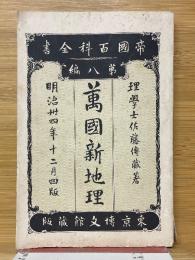 帝國百科全書
第八編
理學士佐藤傳藏著
萬國新地理
明治卅四年十二月四版
東京博文館藏版